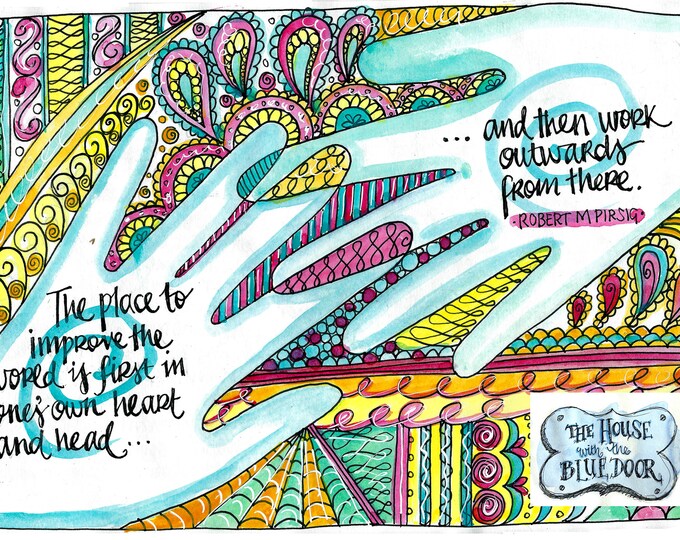 The place to
improve the
world is first in
one's own heart
and head ...
... and then work
outwards
from there.
ROBERT M PIRSIG
THE HOUSE
with the
BLUE DOOR